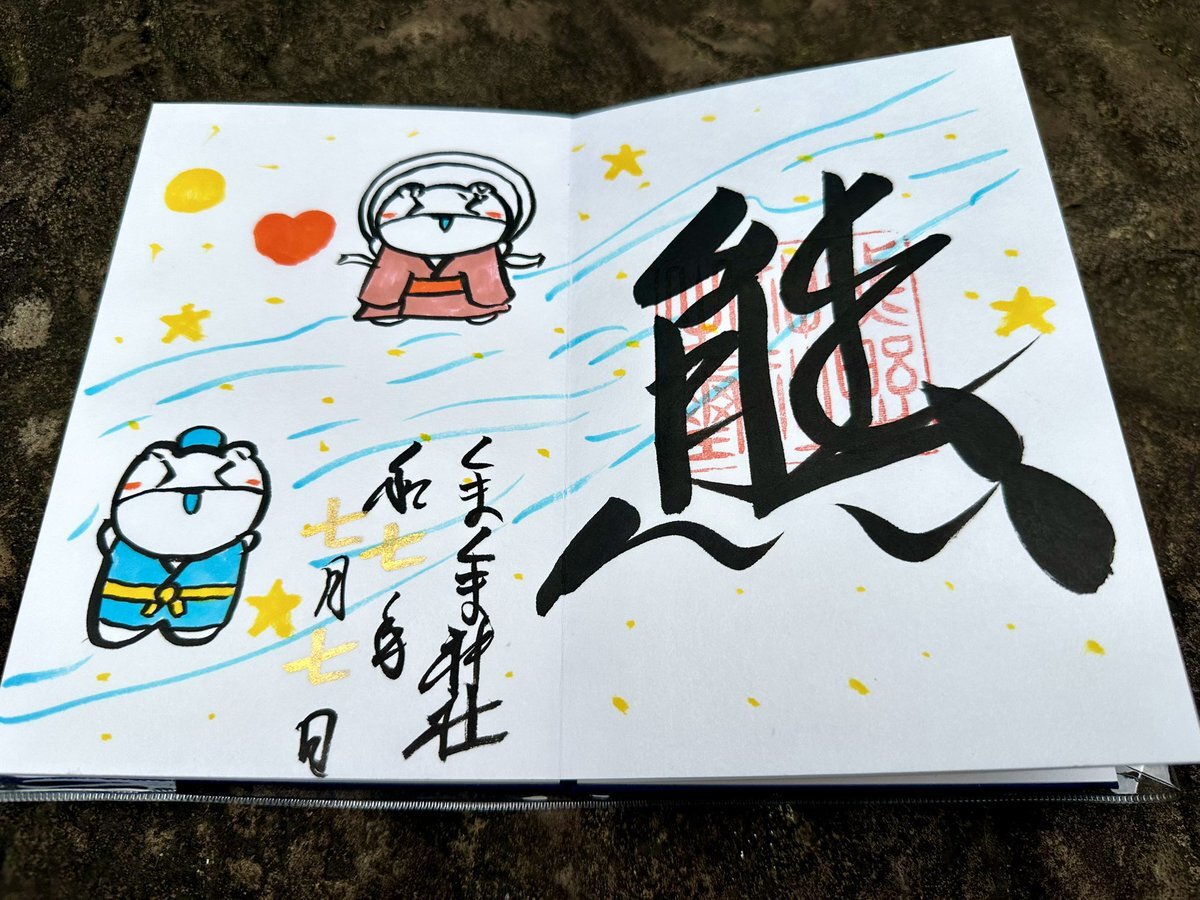 熊
くまくま神社
和七年
七月七日